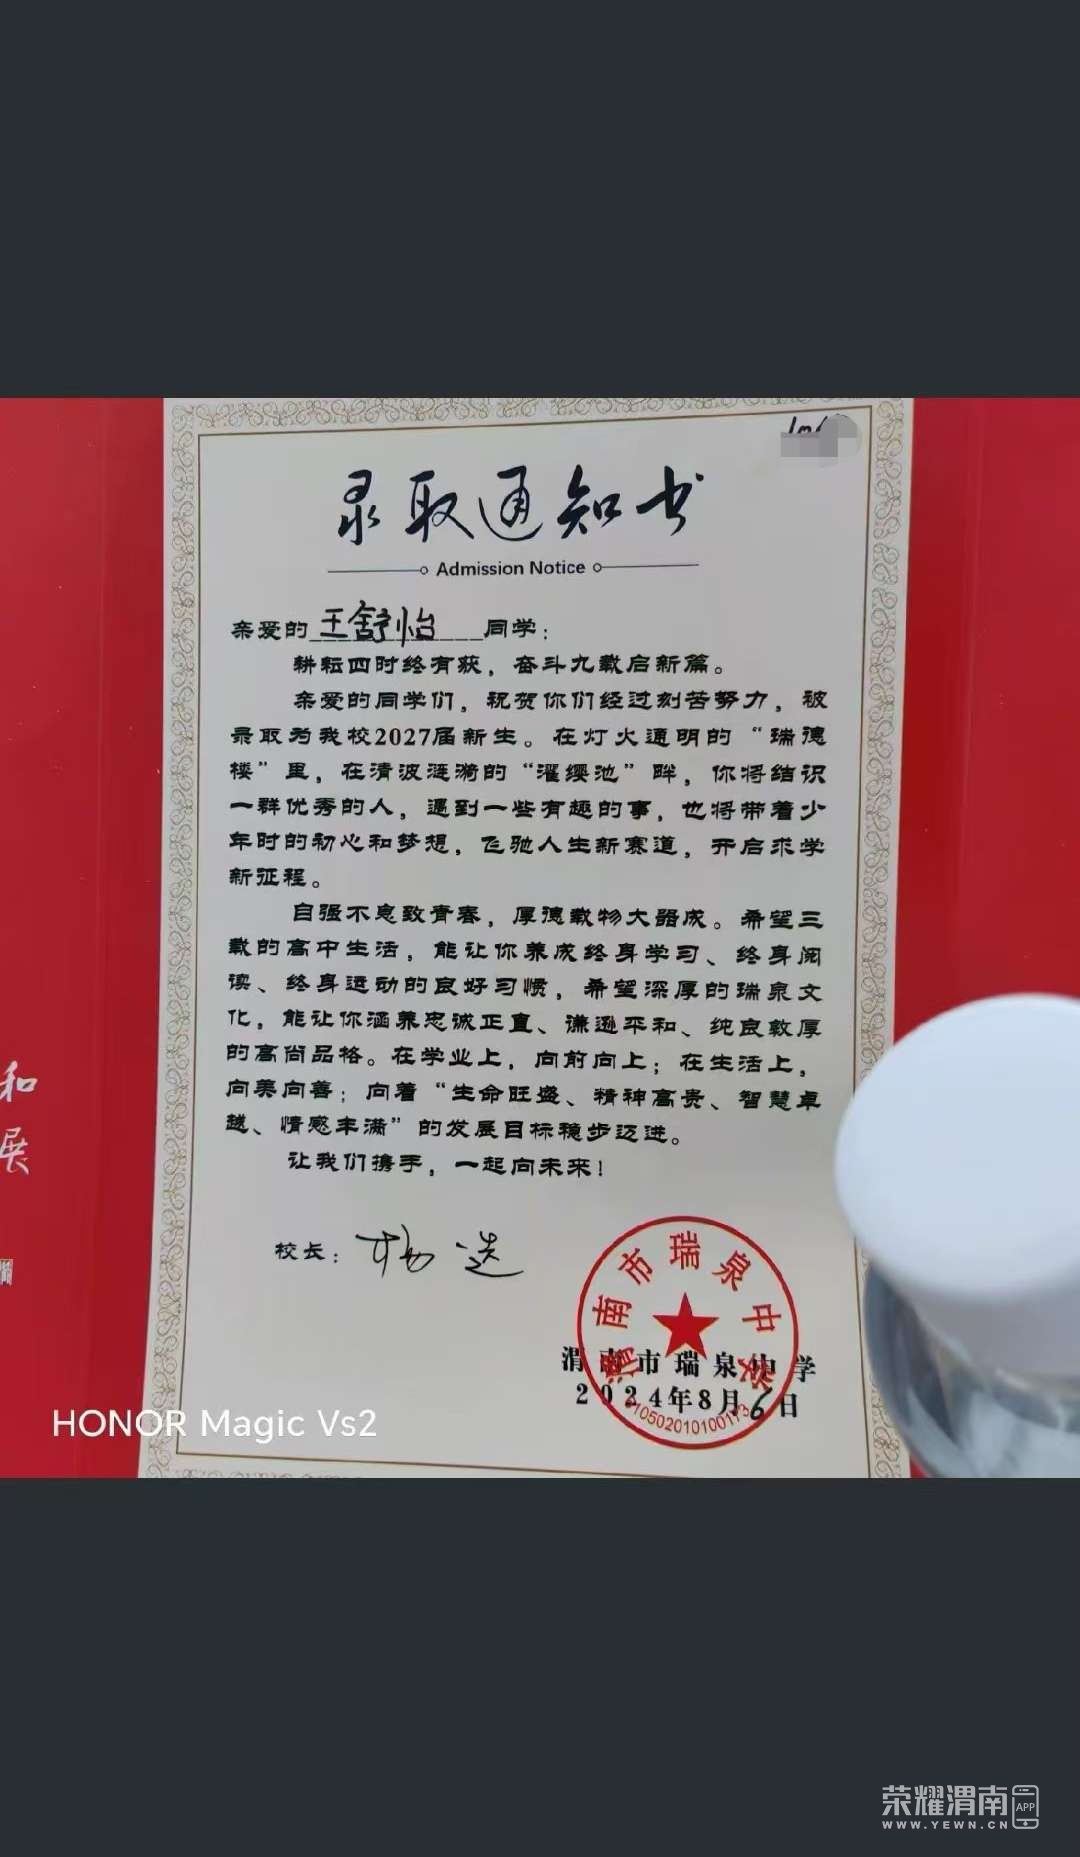 录取通知书
Admission Notice
亲爱的王舒怡同学：
耕耘四时终有获，奋斗九载启新篇。
亲爱的同学们，祝贺你们经过刻苦努力，被
录取为我校2027届新生。在灯火通明的“瑞德
楼”里，在清波涟漪的“濯缨池”畔，你将结识
一群优秀的人，遇到一些有趣的事，也将带着少
年时的初心和梦想，飞驰人生新赛道，开启求学
新征程。
自强不息致青春，厚德载物大器成。希望三
载的高中生活，能让你养成终身学习、终身阅
读、终身运动的良好习惯，希望深厚的瑞泉文
化，能让你涵养忠诚正直、谦逊平和、纯良敦厚
的高尚品格。在学业上，向前向上；在生活上，
向美向善；向着“生命旺盛、精神高贵、智慧卓
越、情感丰满”的发展目标稳步迈进。
让我们携手，一起向未来！
校长：杨选
渭南市瑞泉中学
渭南市瑞泉中学
2024年8月6日
6105020101001​73
和
展
HONOR Magic Vs2
荣耀渭南APP
WWW.YEWN.CN